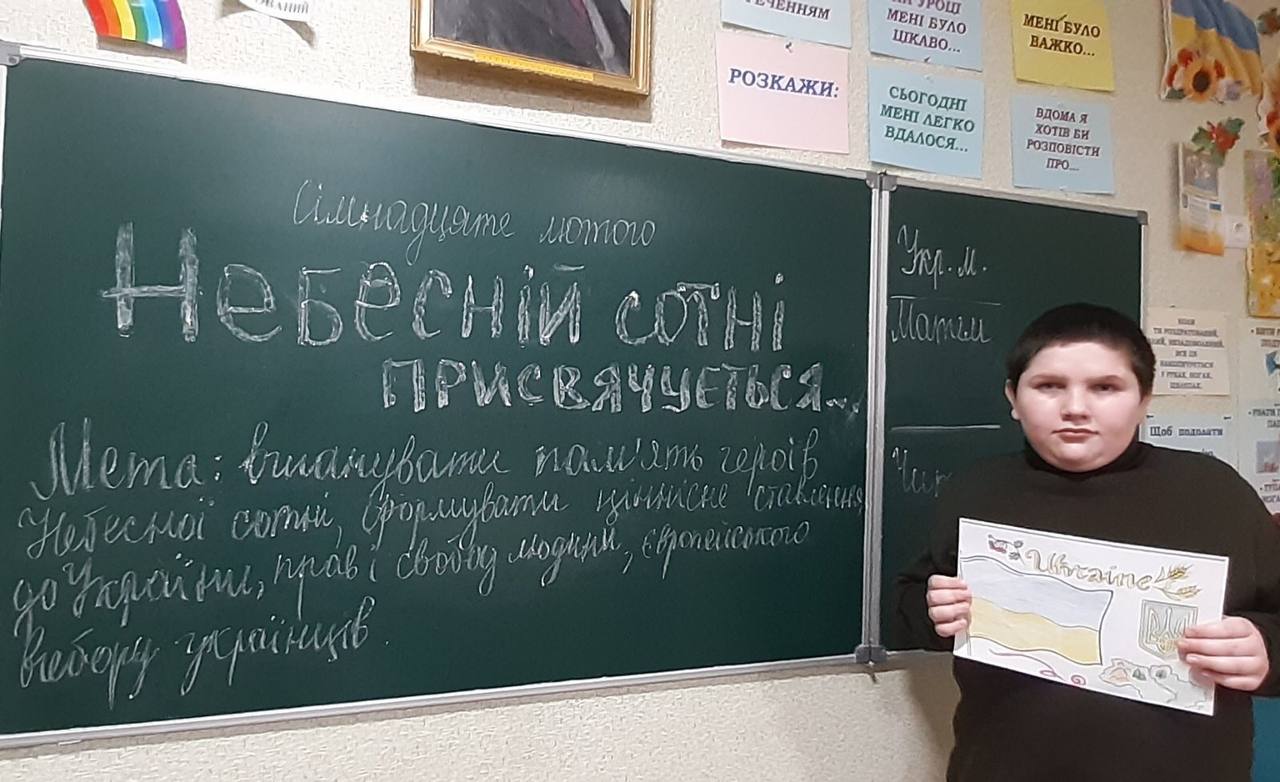 ОВАНИЙ
РЕЧЕННЯМ
НА УРОЦІ
МЕНІ БУЛО
ЦІКАВО...
МЕНІ БУЛО
ВАЖКО...
РОЗКАЖИ:
СЬОГОДНІ
МЕНІ ЛЕГКО
ВДАЛОСЯ...
ВДОМА Я
ХОТІВ БИ
РОЗПОВІСТИ
ПРО...
Сімнадцяте лютого
Небесній сотні
присвячується...
Мета: вшанувати пам'ять героїв
Небесної сотні, сформувати ціннісне ставлення
до України, прав і свобод людини, європейського
вибору українців.
Укр. м.
Матем
Чит
КОЛИ
ТИ РОЗДРАТОВАНИЙ,
НЕЗАДОВОЛЕНИЙ,
ВСЕ ЦЕ
НАКОПИЧУЄТЬСЯ
У РУКАХ, НОГАХ,
Щоб подолати
Ukraine